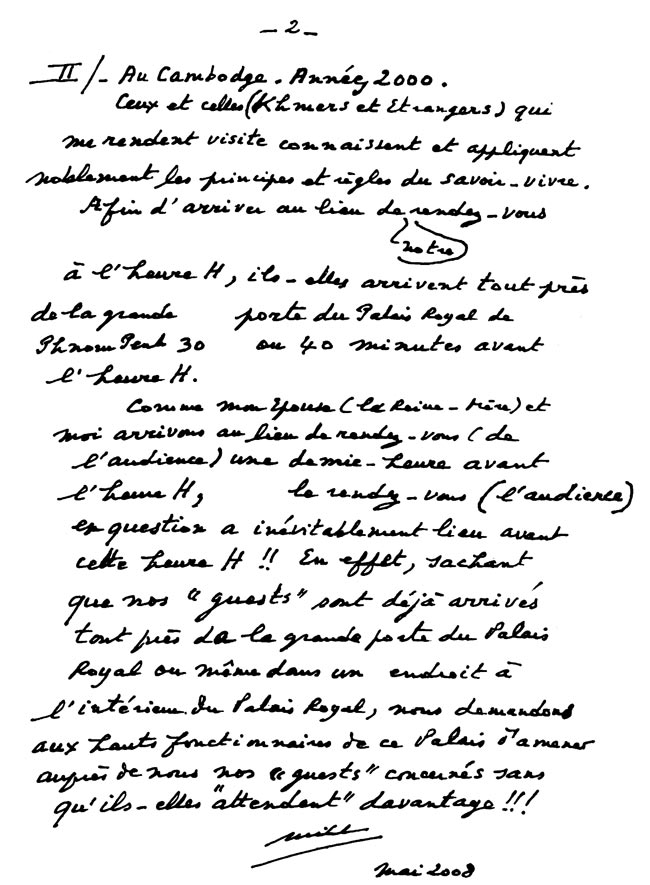 - 2 -
II/- Au Cambodge. Années 2000.
Ceux et celles (Khmers et Etrangers) qui
me rendent visite connaissent et appliquent
noblement les principes et règles du savoir-vivre.
Afin d'arriver au lieu de rendez-vous
notre
à l'heure H, ils-elles arrivent tout près
de la grande porte du Palais Royal de
Phnom Penh 30 ou 40 minutes avant
l'heure H.
Comme mon Epouse (la Reine-Mère) et
moi arrivons au lieu de rendez-vous (de
l'audience) une demie-heure avant
l'heure H, le rendez-vous (l'audience)
en question a inévitablement lieu avant
cette heure H !! En effet, sachant
que nos "guests" sont déjà arrivés
tout près de la grande porte du Palais
Royal ou même dans un endroit à
l'intérieur du Palais Royal, nous demandons
aux hauts fonctionnaires de ce Palais d'amener
auprès de nous nos "guests" concernés sans
qu'ils-elles "attendent" davantage !!!
mai 2008